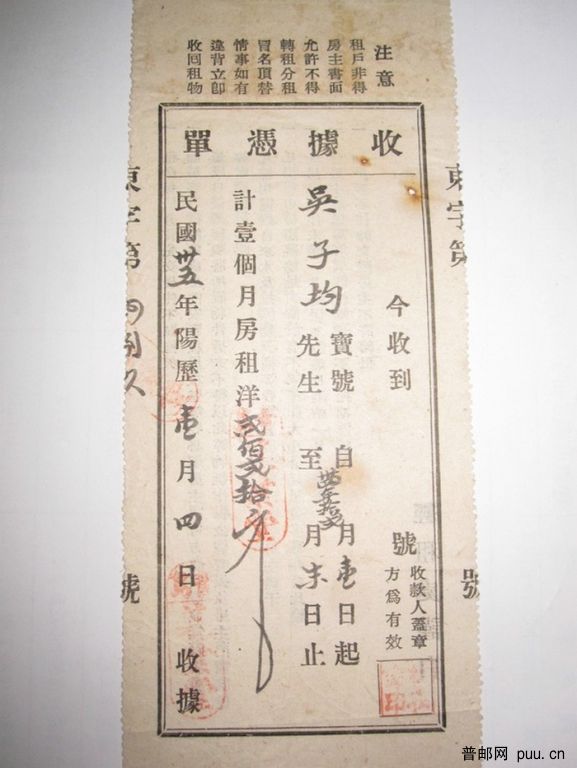 注意
租戶非得
房主書面
允許不得
轉租分租
冒名頂替
情事如有
違背立即
收回租物
收據憑單
東字第
號
今收到
號
收款人蓋章
方為有效
吳子均
寶號
先生
自
月壹日起
至
月末日止
計壹個月房租洋弍佰弍拾
民國卅五年陽歷壹月四日
收據
東字第
號
普邮网 puu.cn